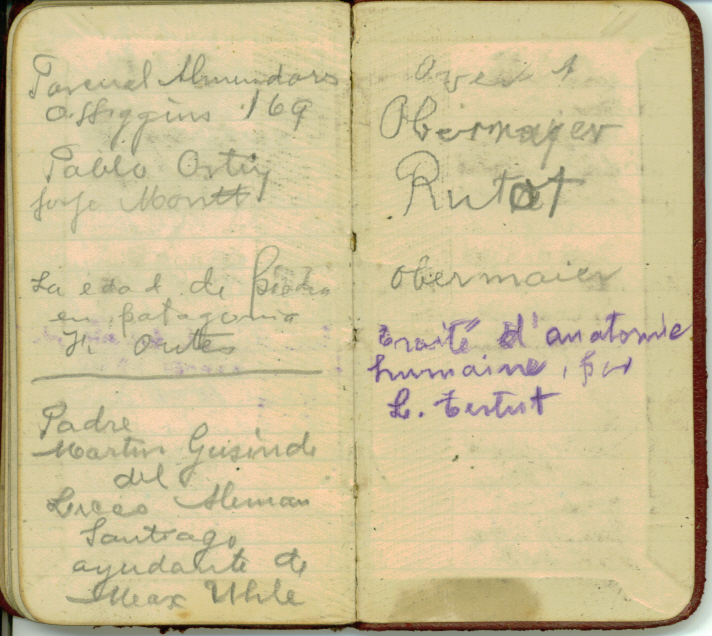 Pascual Almandares
O'Higgins 169
Pablo Ortiz
Jorje Montt
La edad de piedra
en patagonia
F. Outes
Padre
Martin Gusinde
del
Liceo Aleman
Santiago
ayudante de
Max Uhle
Obermayer
Rutot
Obermaier
traité d'anatomie
humaine, par
L. Testut